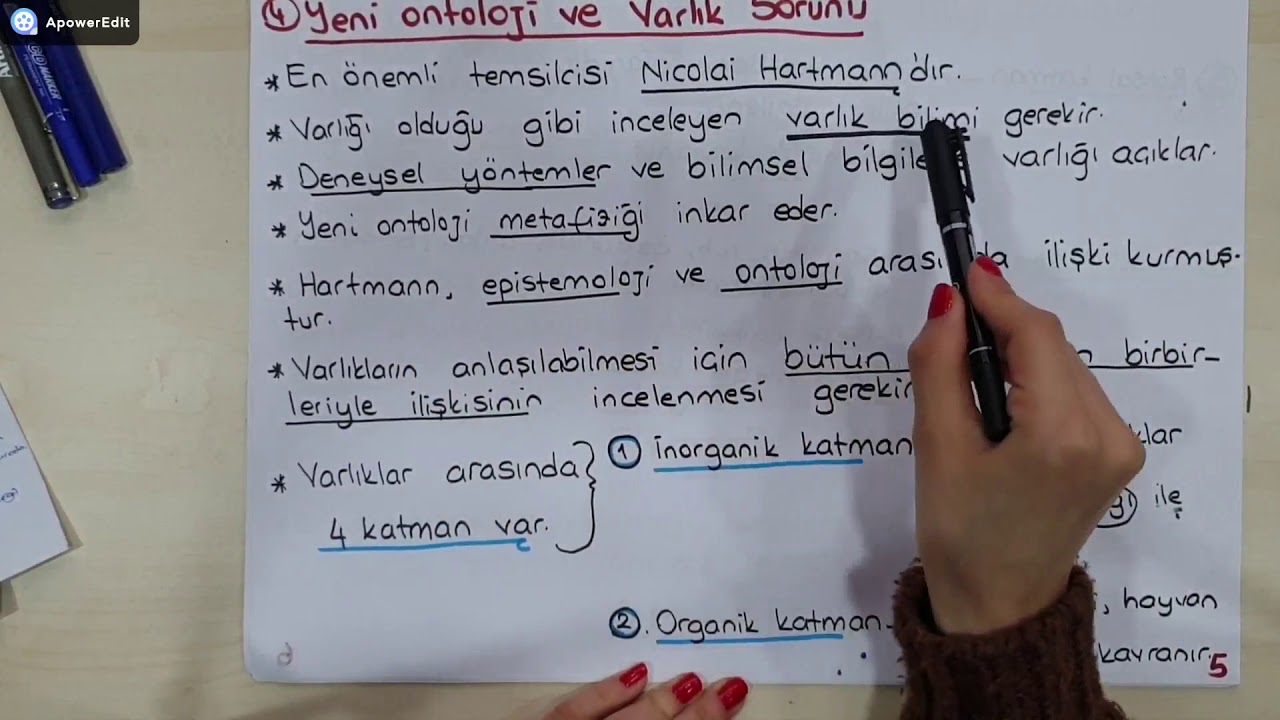 ApowerEdit
4 Yeni ontoloji ve Varlık Sorunu
* En önemli temsilcisi Nicolai Hartmann'dır.
* Varlığı olduğu gibi inceleyen varlık bilimi gerekir.
* Deneysel yöntemler ve bilimsel varlığı açıklar.
* Yeni ontoloji metafiziği inkar eder.
* Hartmann, epistemoloji ve ontoloji ilişki kurmuş-
tur.
* Varlıkların anlaşılabilmesi için bütün birbir-
leriyle ilişkisinin incelenmesi
* Varlıklar arasında 1 İnorganik katman
4 katman var. ile
2. Organik katman- , hayvan
kavranır. 5